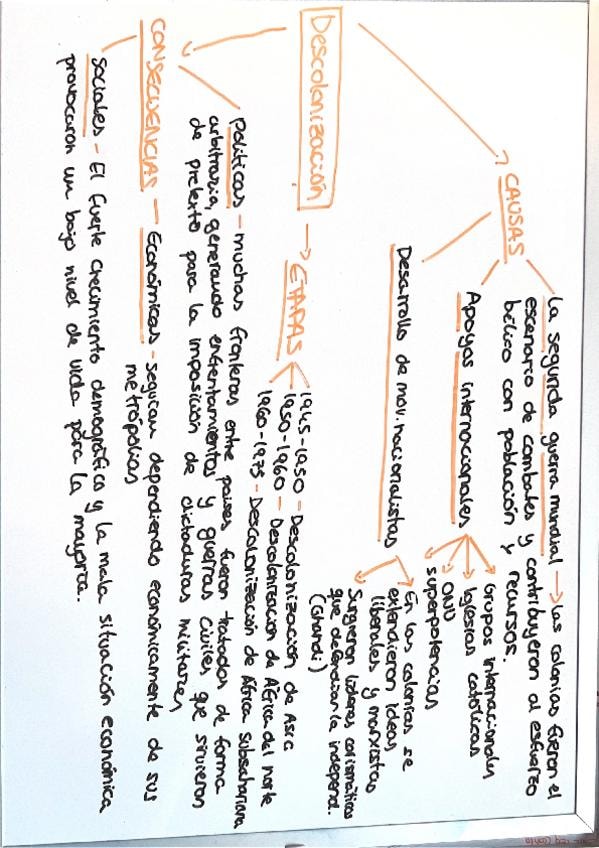 CAUSAS
La segunda guerra mundial → Las colonias fueron el
escenario de combates y contribuyeron al esfuerzo
bélico con población y recursos.
Apoyos internacionales
Grupos internacionales
Iglesias católicas
ONU
superpotencias
Desarrollo de mov. nacionalistas
En las colonias se
extendieron ideas
liberales y marxistas
Surgieron líderes carismáticos
que defendían la independ.
(Ghandi)
Descolonización
→ ETAPAS
1945-1950 - Descolonización de Asia
1950-1960 - Descolonización de África del norte
1960-1975 - Descolonización de África Subsahariana
CONSECUENCIAS
Políticas - muchas fronteras entre países fueron tratados de forma
arbitraria, generando enfrentamientos y guerras civiles que sirvieron
de pretexto para la imposición de dictaduras militares
Económicas - seguían dependiendo económicamente de sus
metrópolias
Sociales - El fuerte crecimiento demográfico y la mala situación económica
provocaron un bajo nivel de vida para la mayoría.